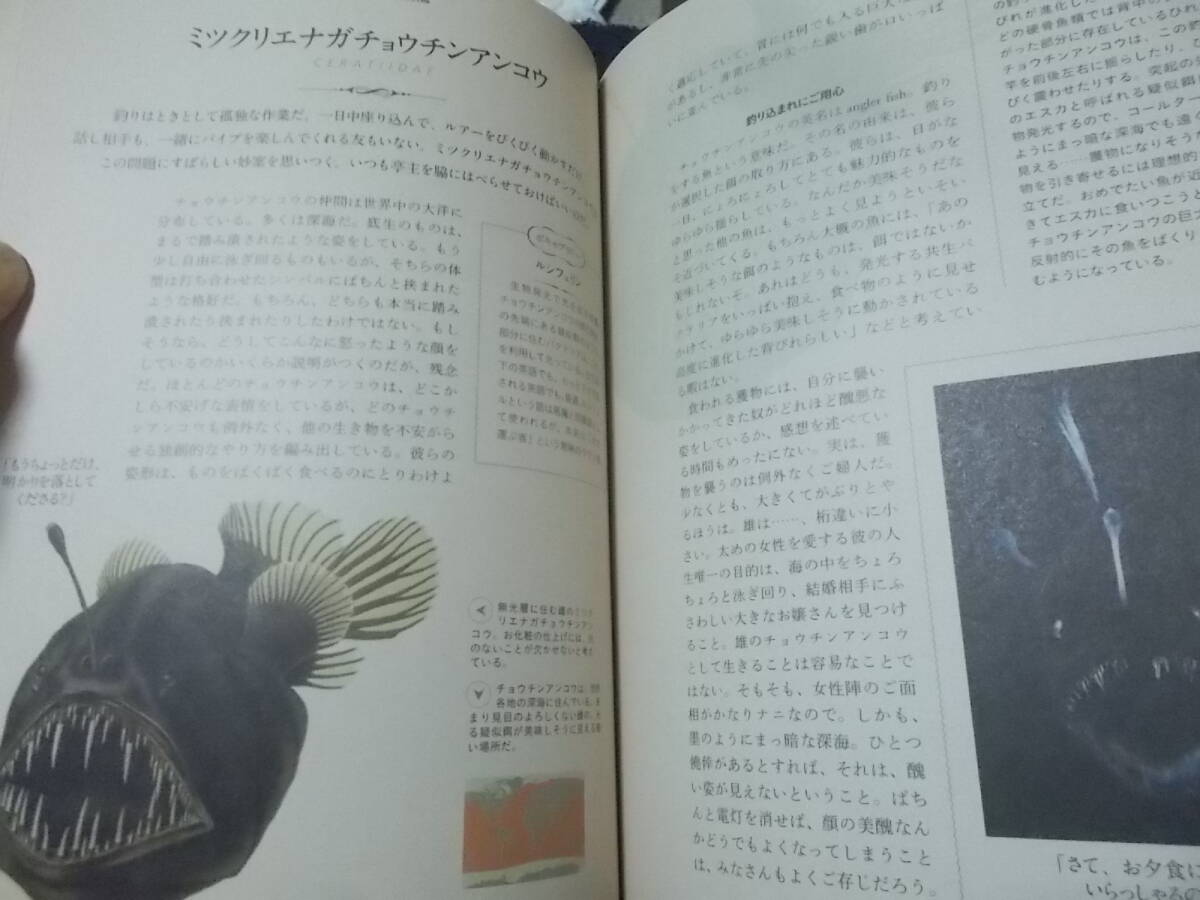 ミツクリエナガチョウチンアンコウ
CERATIIDAE
釣りはときとして孤独な作業だ。一日中座り込んで、ルアーをぴくぴく動かすだけ。
話し相手も、一緒にパイプを楽しんでくれる友もいない。ミツクリエナガチョウチンアンコウは
この問題にすばらしい妙案を思いつく。いつも亭主を脇にはべらせておけばいい
チョウチンアンコウの仲間は世界中の大洋に
分布している。多くは深海だ。底生のものは、
まるで踏み潰されたような姿をしている。もう
少し自由に泳ぎ回るものもいるが、そちらの体
型は打ち合わせたシンバルにぱちんと挟まれた
ような格好だ。もちろん、どちらも本当に踏み
潰されたり挟まれたりしたわけではない。もし
そうなら、どうしてこんなに怒ったような顔を
しているのかいくらか説明がつくのだが、残念
だ。ほとんどのチョウチンアンコウは、どこか
しら不安げな表情をしているが、どのチョウチ
ンアンコウも例外なく、他の生き物を不安がら
せる独創的なやり方を編み出している。彼らの
姿形は、ものをぱくぱく食べるのにとりわけよ
ルシフェリン
「もうちょっとだけ、
明かりを落として
くださる?」
無光層に住む雌のミツク
リエナガチョウチンアン
コウ。お化粧の仕上げには、光
のないことが欠かせないと考え
ている。
チョウチンアンコウは、世界
各地の深海に住んでいる。あ
まり見目のよろしくない雌の、光
る疑似餌が美味しそうに見える暗
い場所だ。
く適応していて、胃には何でも入る巨大な
があるし、非常に先の尖った鋭い歯が口いっぱ
いに並んでいる。
釣り込まれにご用心
チョウチンアンコウの英名は angler fish。釣り
をする魚という意味だ。その名の由来は、彼ら
が選択した餌の取り方にある。彼らは、日がな
一日、にょろにょろしてとても魅力的なものを
ゆらゆら揺らしている。なんだか美味そうだな
と思った他の魚は、もっとよく見ようといそい
そ近づいてくる。もちろん大概の魚には、「あの
美味しそうな餌のようなものは、餌ではないか
もしれないぞ。あれはどうも、発光する共生バ
クテリアをいっぱい抱え、食べ物のように見せ
かけて、ゆらゆら美味しそうに動かされている
高度に進化した背びれらしい」などと考えてい
る暇はない。
食われる獲物には、自分に襲い
かかってきた奴がどれほど醜悪な
姿をしているか、感想を述べてい
る時間もめったにない。実は、獲
物を襲うのは例外なくご婦人だ。
少なくとも、大きくてがぶりとや
るほうは。雄は……、桁違いに小
さい。太めの女性を愛する彼の人
生唯一の目的は、海の中をちょろ
ちょろと泳ぎ回り、結婚相手にふ
さわしい大きなお嬢さんを見つけ
ること。雄のチョウチンアンコウ
として生きることは容易なことで
はない。そもそも、女性陣のご面
相がかなりナニなので。しかも、
墨のようにまっ暗な深海。ひとつ
僥倖があるとすれば、それは、醜
い姿が見えないということ。ぱち
んと電灯を消せば、顔の美醜なん
かどうでもよくなってしまうこと
は、みなさんもよくご存じだろう。
びれが進化した
どの硬骨魚類では背中の
がった部分に存在しているひれ
チョウチンアンコウは、この釣
竿を前後左右に揺らしたり、ぴ
びく震わせたりする。突起の先
のエスカと呼ばれる疑似餌
物発光するので、コールター
ようにまっ暗な深海でも遠く
見える……獲物になりそうな
物を引き寄せるには理想的
立てだ。おめでたい魚が近
きてエスカに食いつこうと
チョウチンアンコウの巨
反射的にその魚をぱくり
むようになっている。
「さて、お夕食に
いらっしゃるの